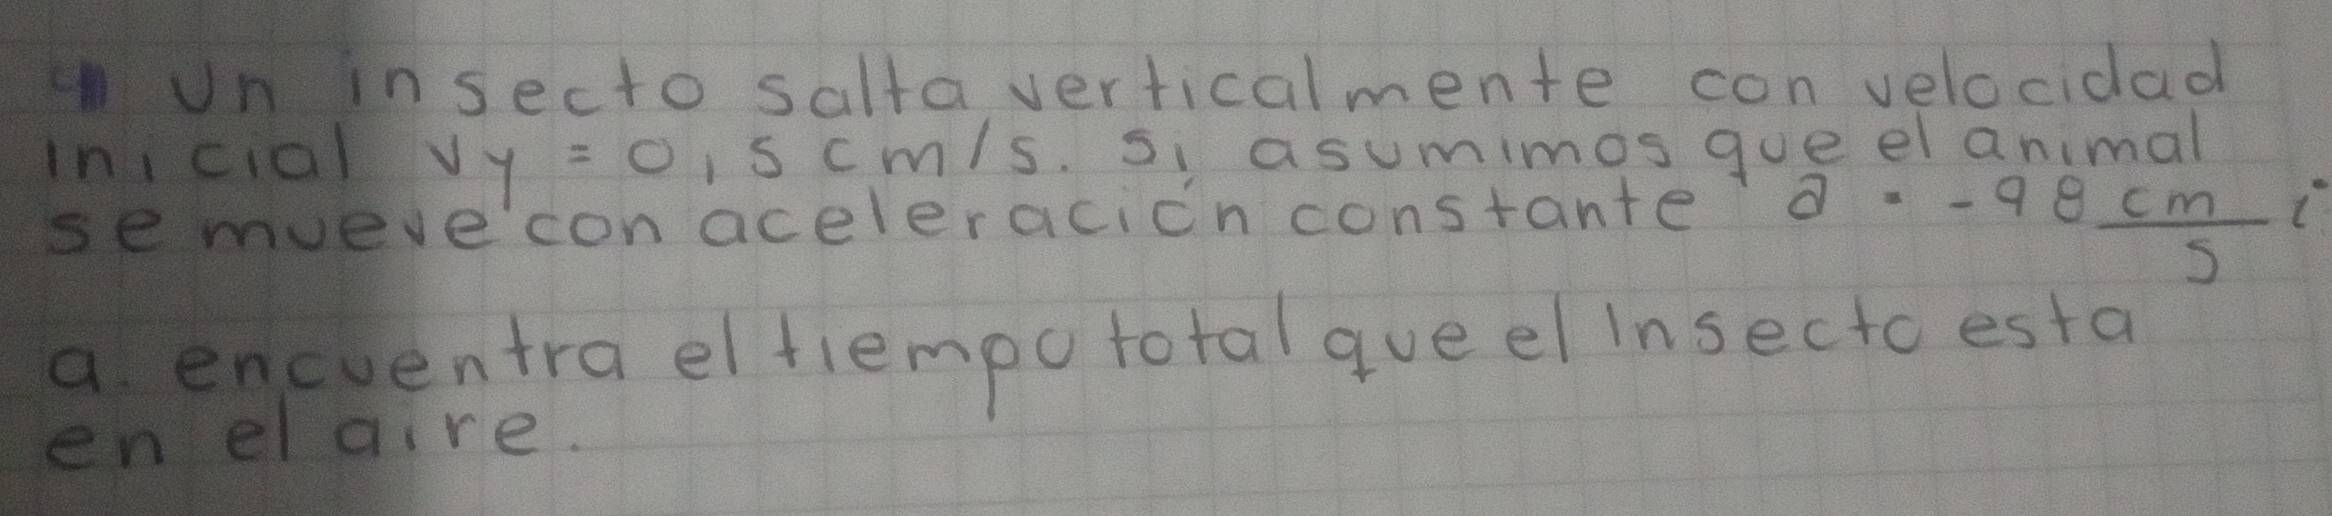 Un insecto salta verticalmente con velocidad
inicial vy = 0,5 cm/s. Si asumimos que el animal
se mueve con aceleración constante a = -98 cm/s i
a. encuentra el tiempo total que el insecto esta
en el aire.